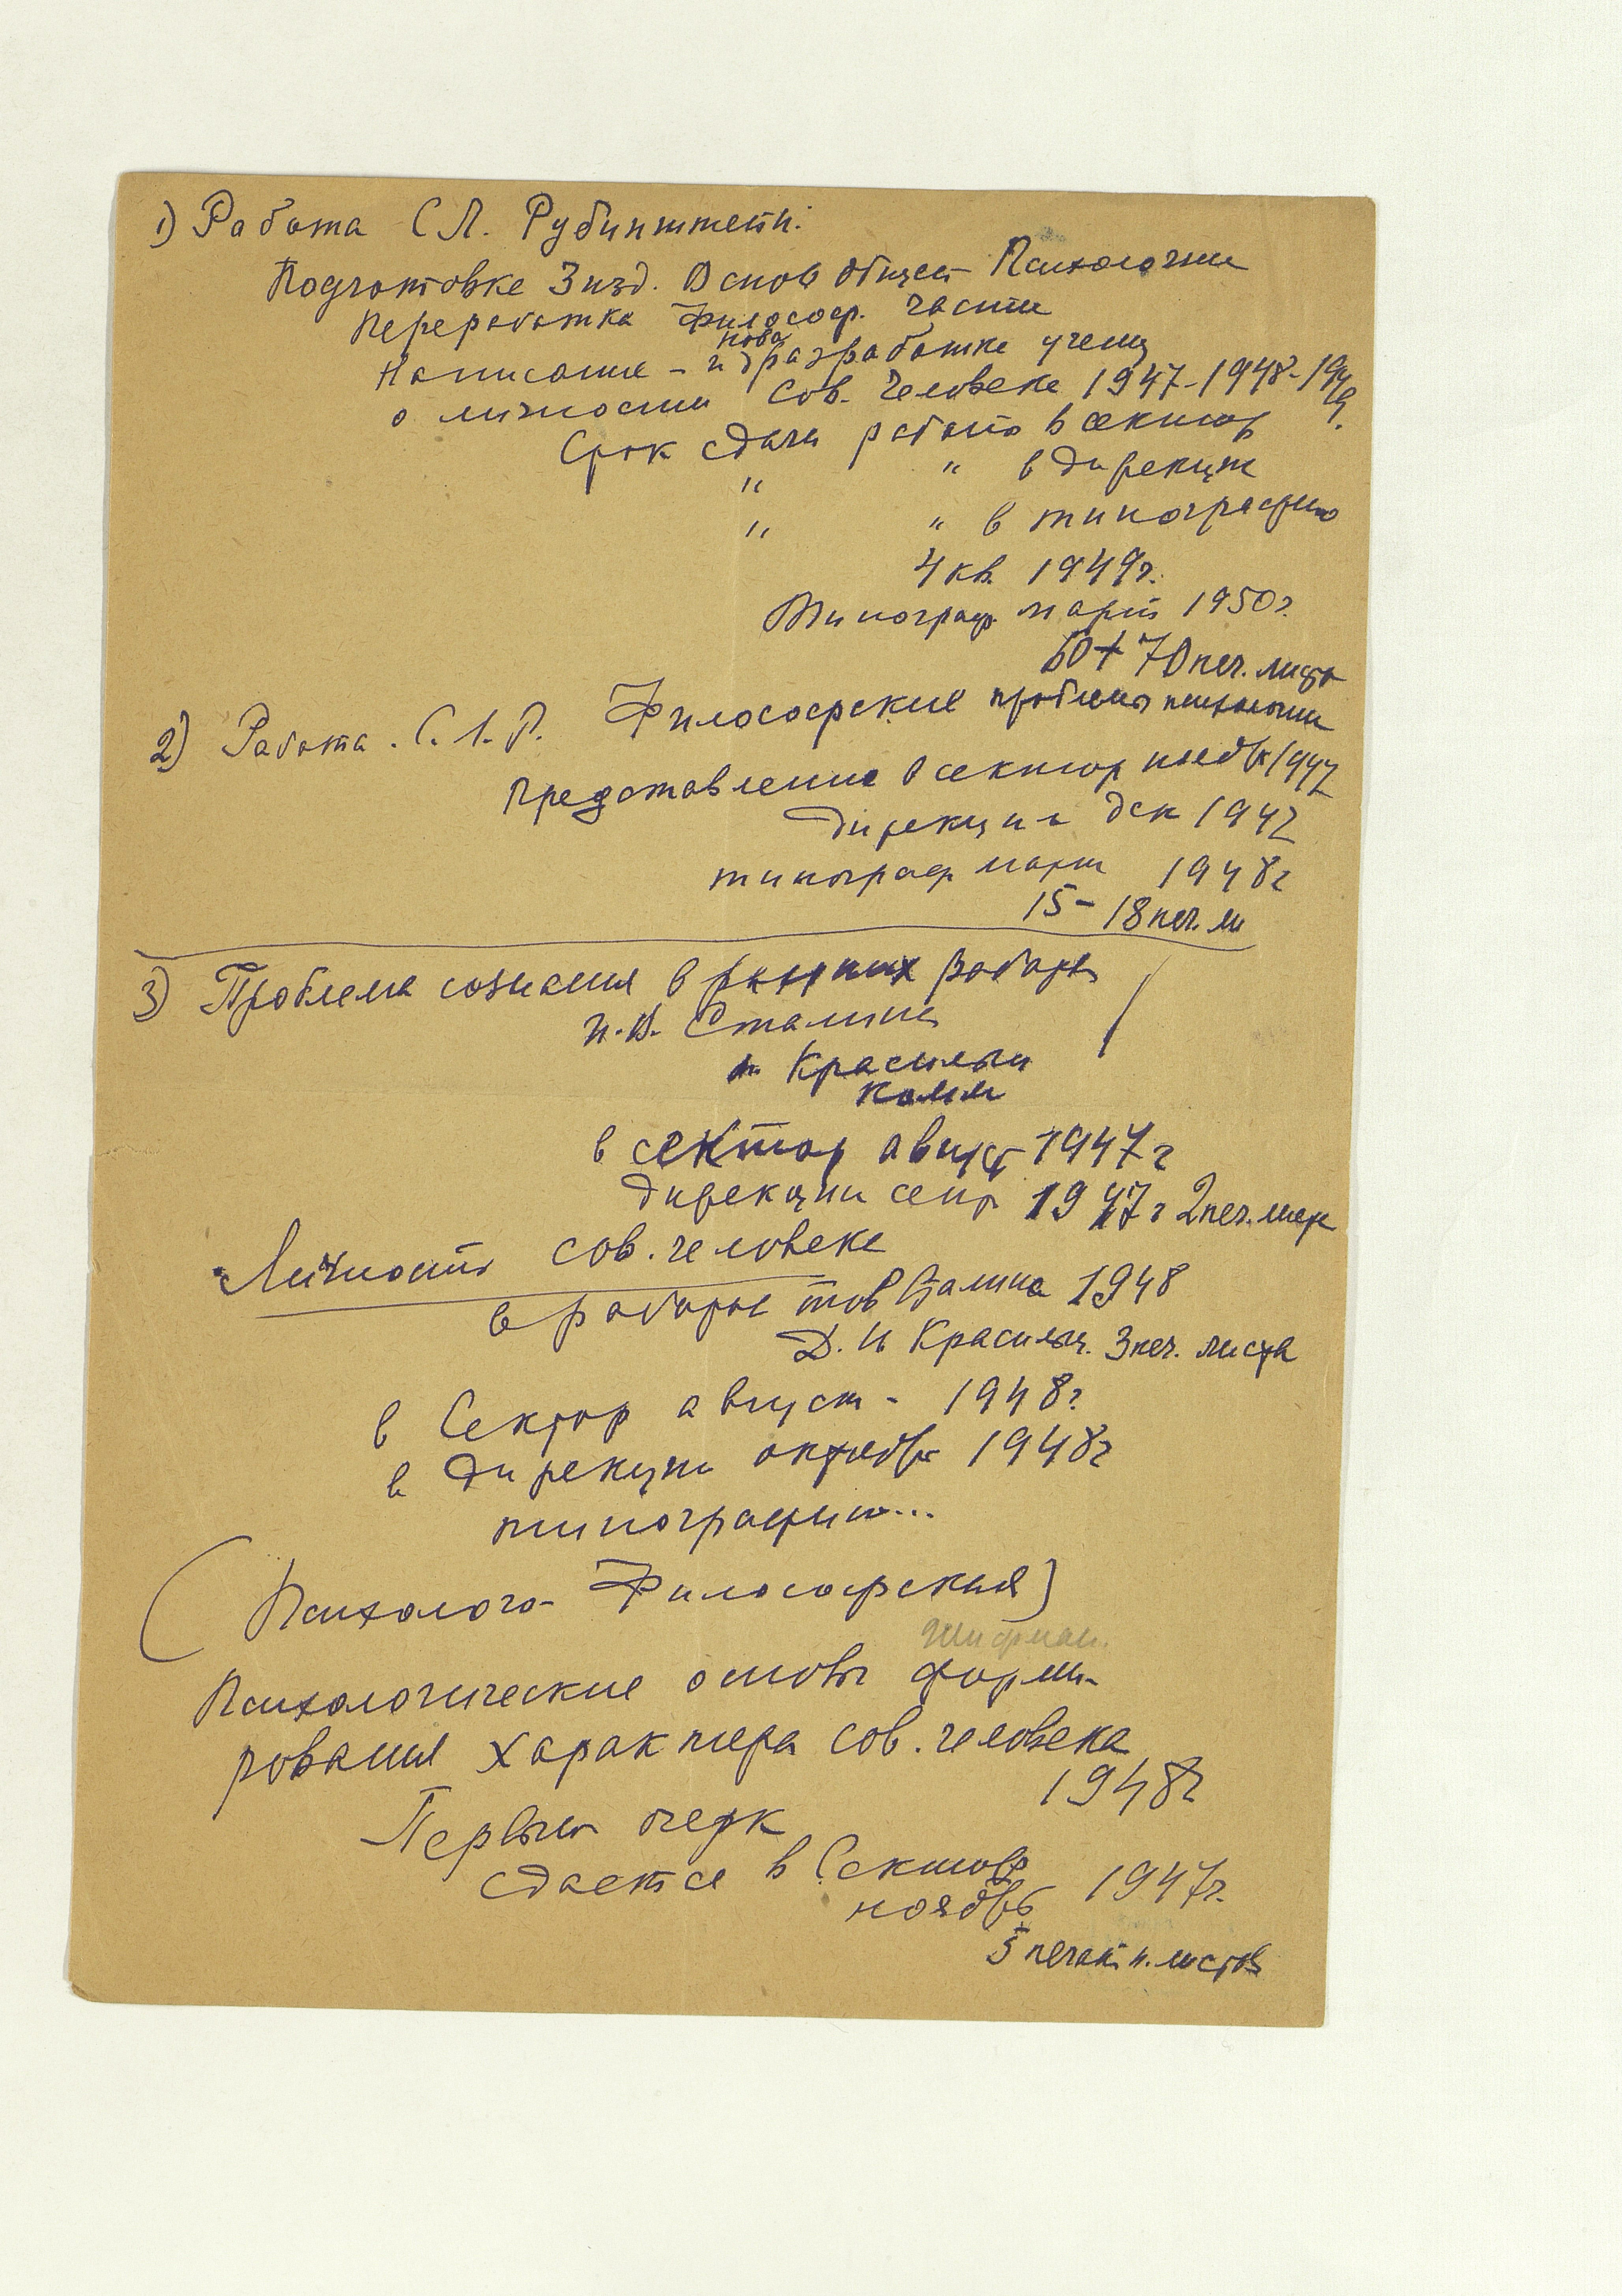 1) Работа С Л. Рубинштейн:
Подготовке 3 изд. Основ общей Психологии
Переработка философ. части
нова
Написание - и разработке учени
о личности Сов. Человеке 1947-1948-1949.
Срок сдачи работы в сектор
" " в дирекци
" " в типографию
4 кв. 1949 г.
Типограф март 1950 г.
60+70 печ. листа
2) Работа. С. Л. Р. Философские проблемы психологии
Представление в сектор ноябр 1947
Дирекции дек 1947
типограф март 1948 г
15-18 печ. л
3) Проблема сознания в ранних работах
И. В. Сталина
Красильщи
в сектор август 1947 г
дирекции сент 1947 г 2 печ. листа
Личность сов. человека
в работах тов Сталина 1948
Д. И Красильщ. 3 печ. листа
в Сектор август - 1948 г
в дирекции октябрь 1948 г
типографии...
(Психолого-Философская)
Шифман.
Психологические основы форми-
рования характера сов. человека
1948 г
Первый очерк
сдается в Сектор
ноябрь 1947 г.
5 печатн. листов